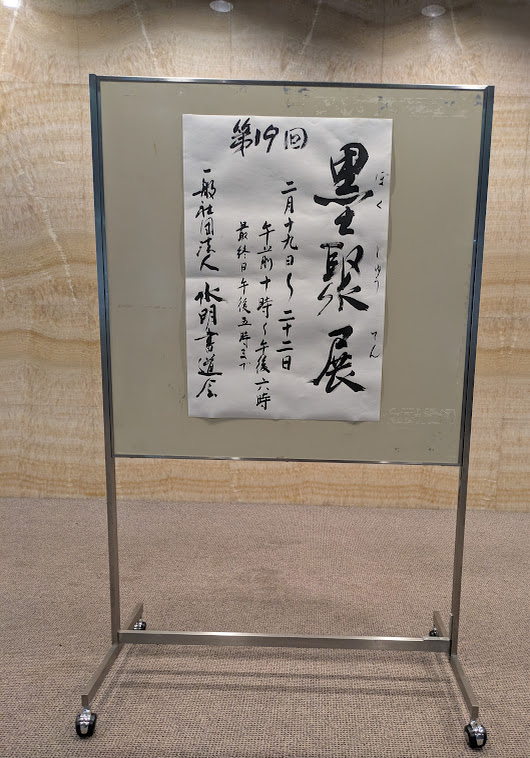 第19回
墨聚展
ぼくしゅうてん
二月十九日〜二十二日
午前十時〜午後六時
最終日午後五時まで
一般社団法人 水明書道会